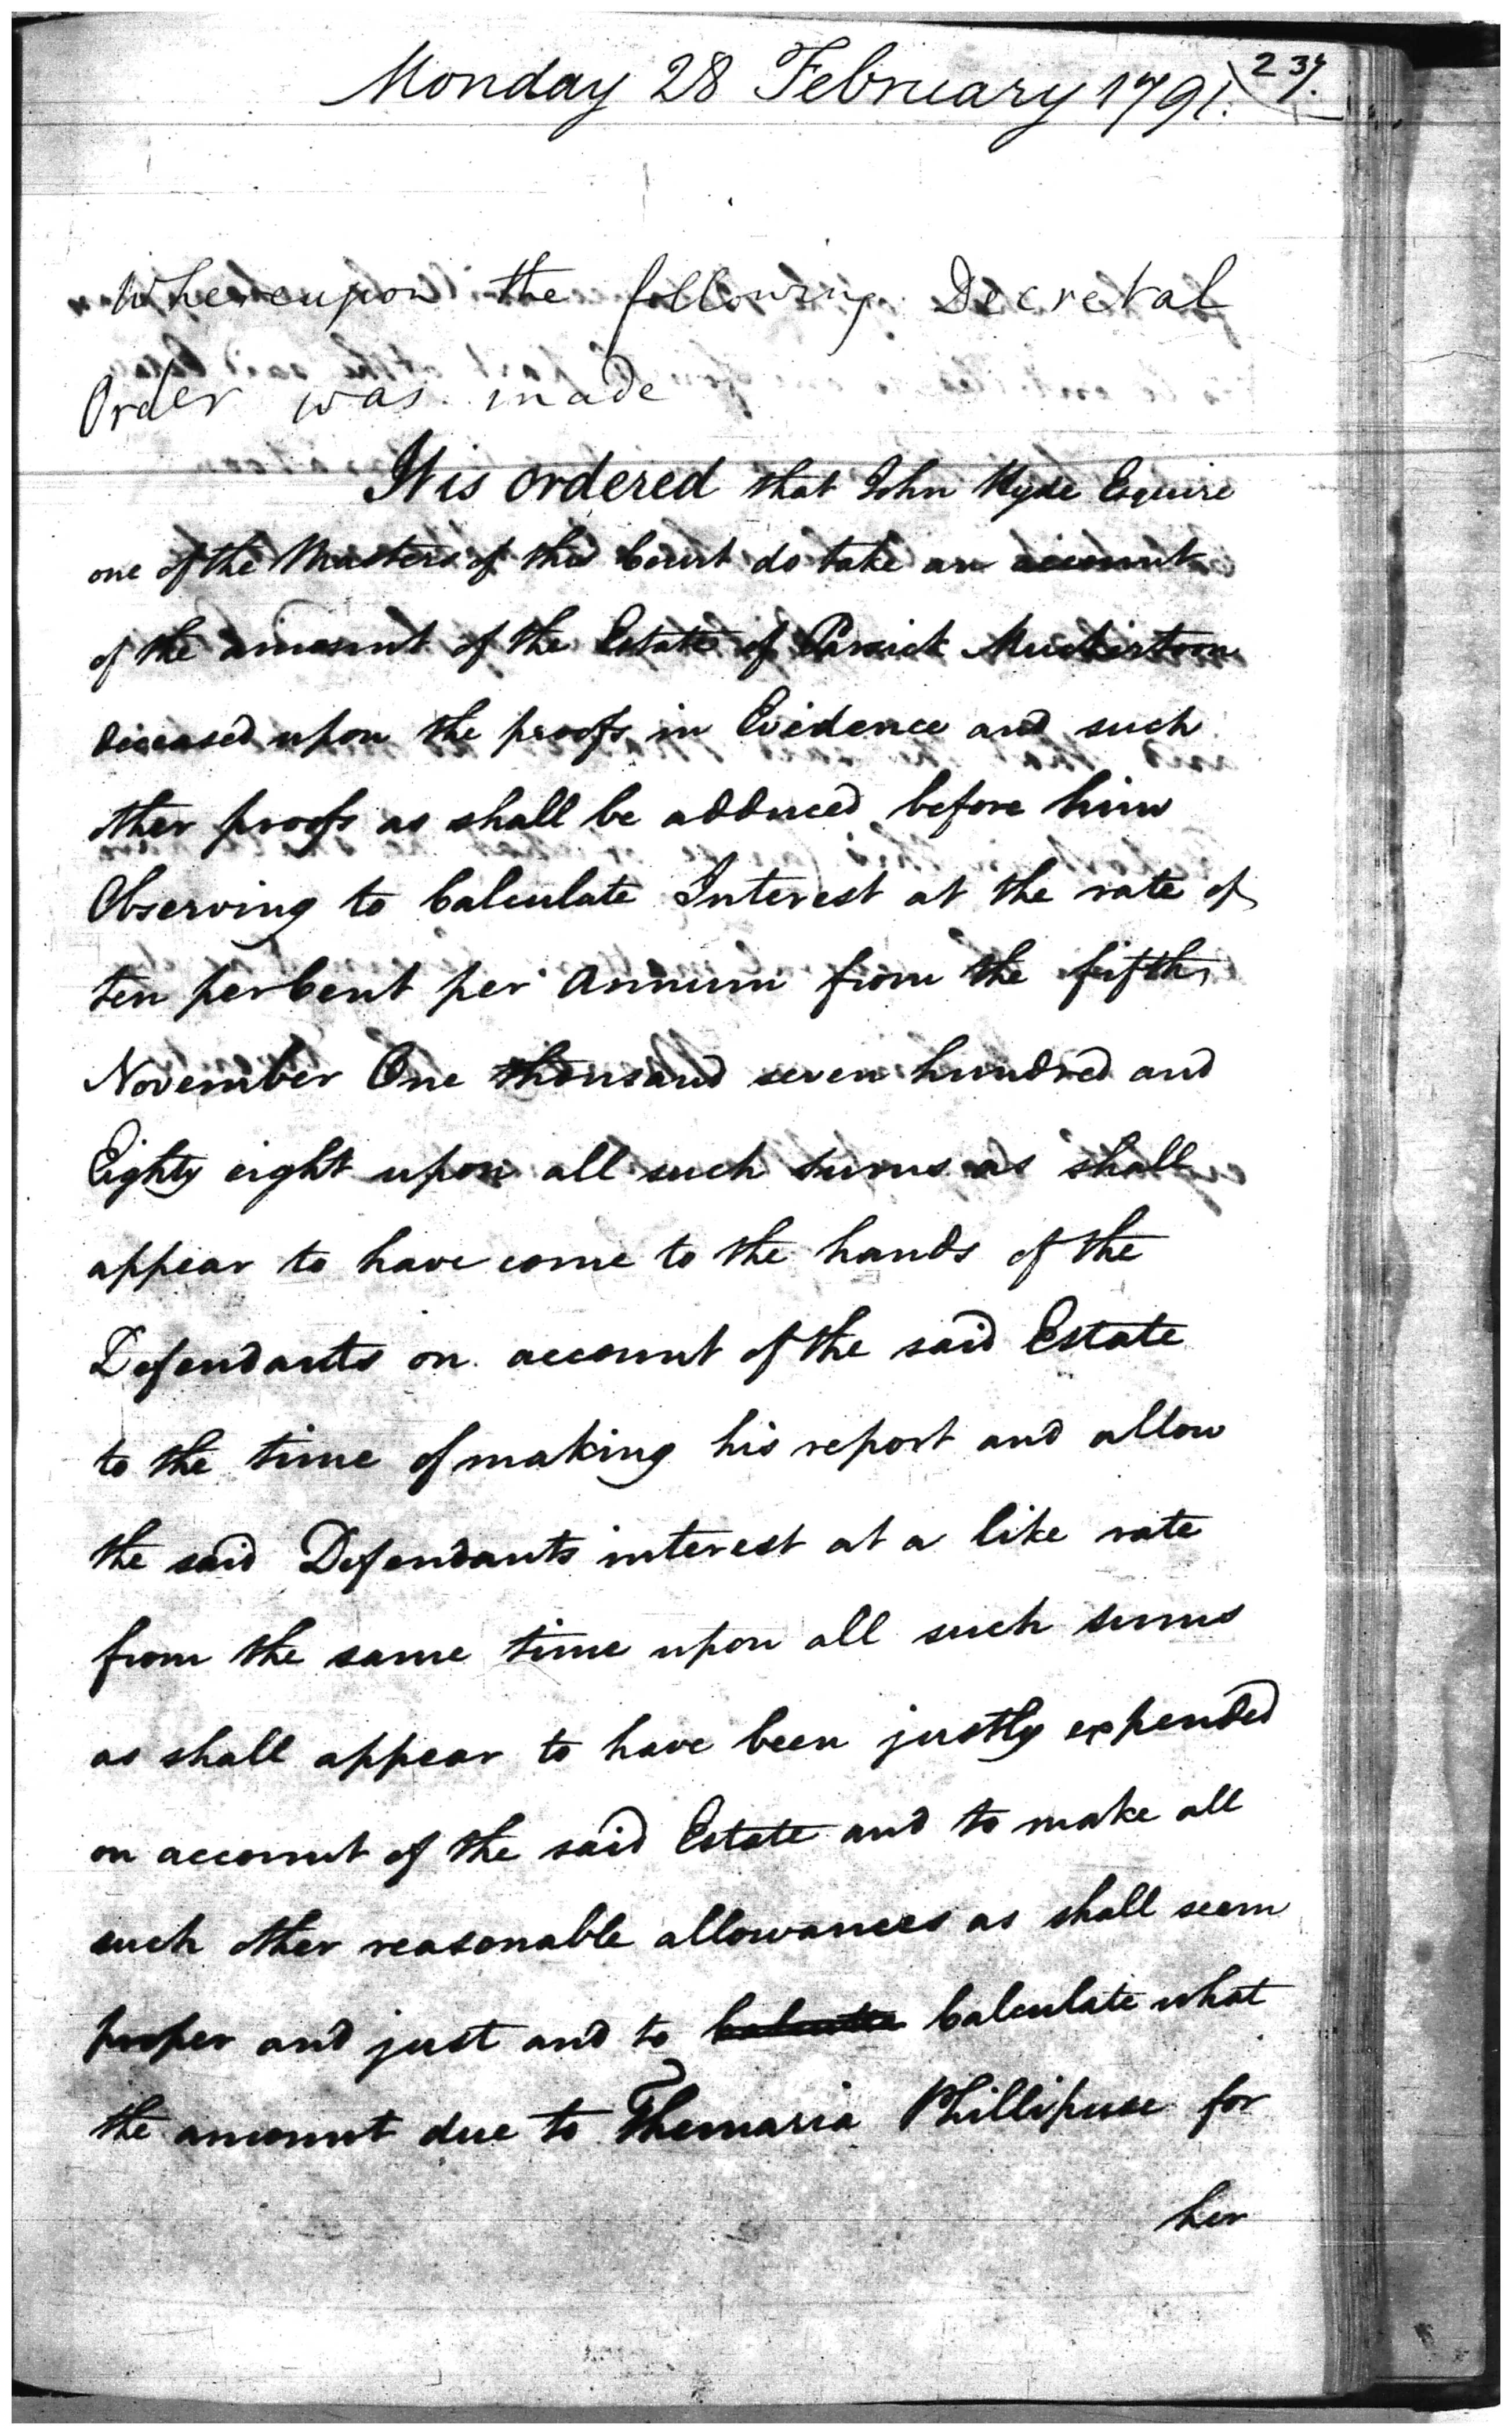 Monday 28 February 1791.
237.
Whereupon the following Decretal
Order was made
It is ordered that John Hyde Esquire
one of the Masters of this Court do take an account
of the amount of the Estate of Parsick Muckirtoom
deceased upon the proofs in Evidence and such
other proofs as shall be adduced before him
Observing to Calculate Interest at the rate of
ten per Cent per Annum from the fifth
November One thousand seven hundred and
Eighty eight upon all such sums as shall
appear to have come to the hands of the
Defendants on account of the said Estate
to the time of making his report and allow
the said Defendants interest at a like rate
from the same time upon all such sums
as shall appear to have been justly expended
on account of the said Estate and to make all
such other reasonable allowances as shall seem
proper and just and to Calculate what
the amount due to Themaria Phillipuse for
her